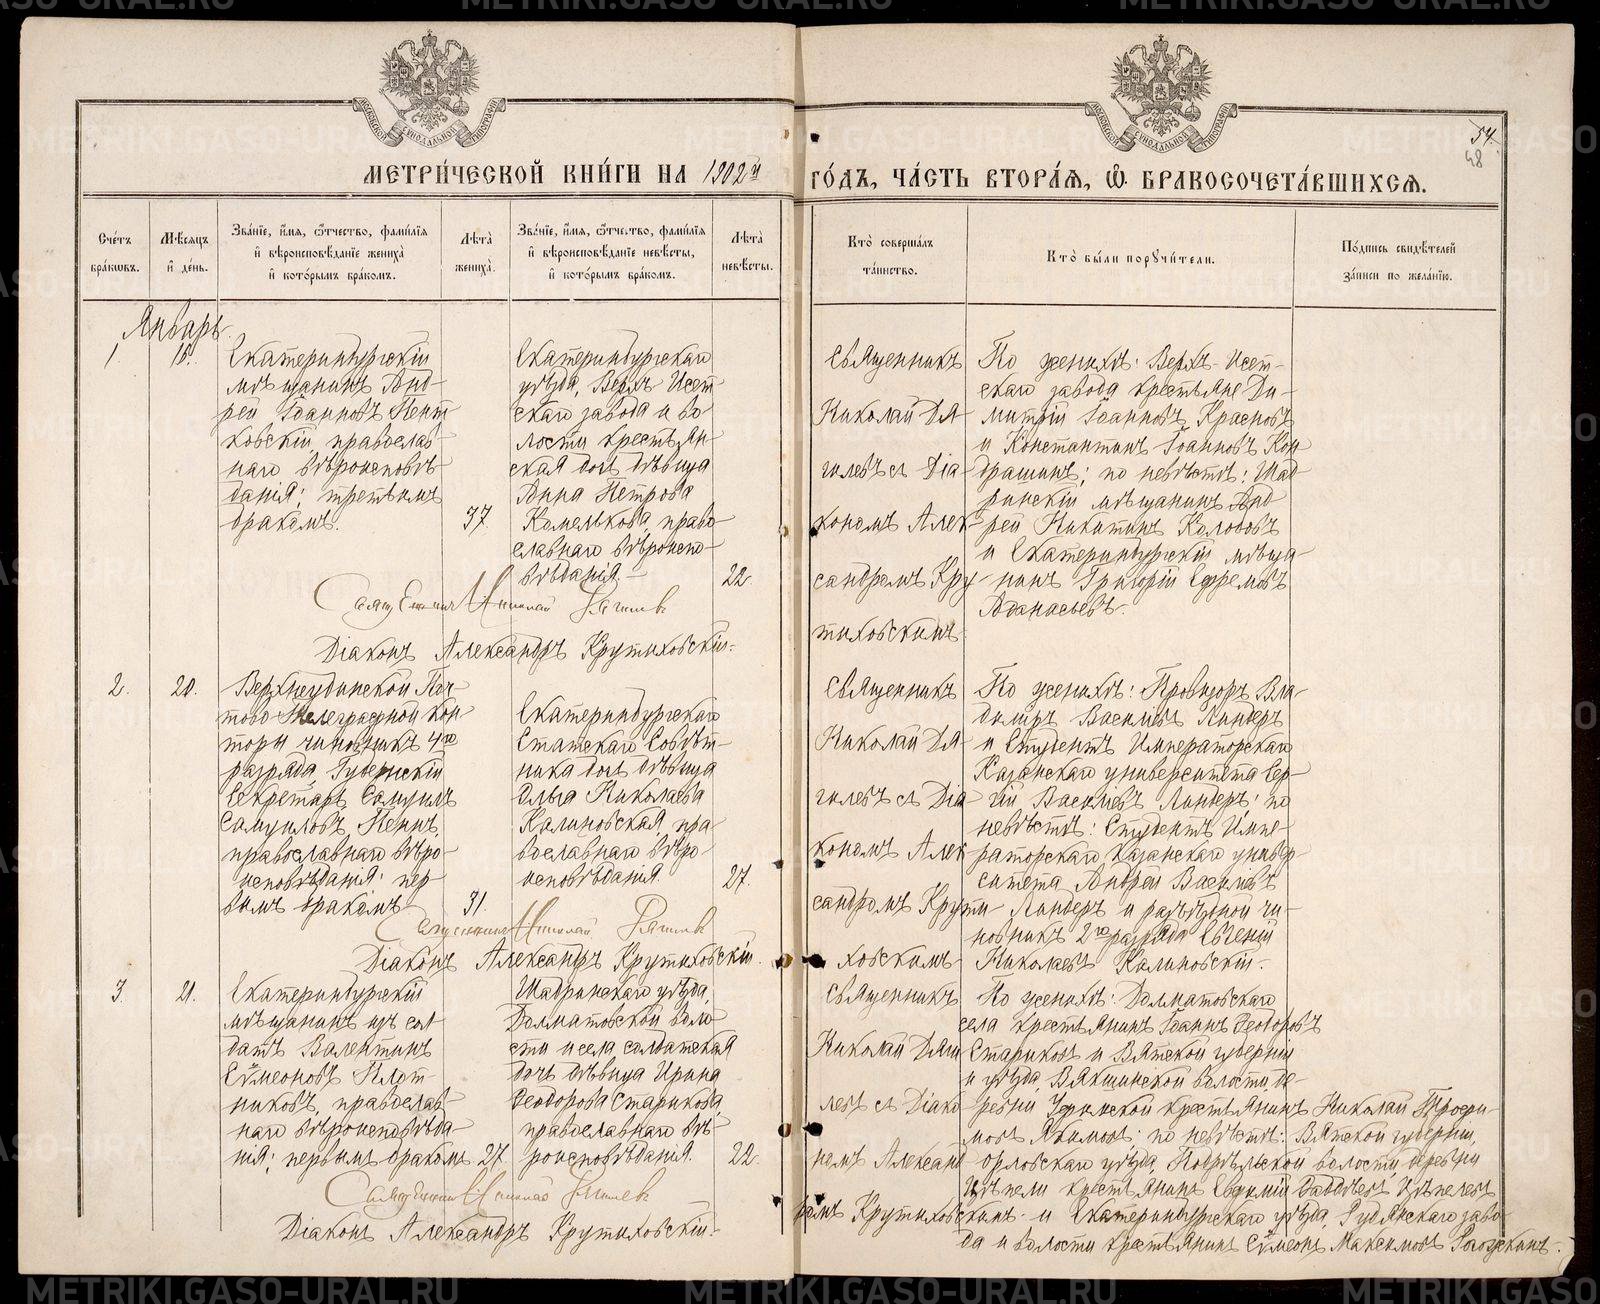 МЕТРИЧЕСКОЙ КНИГИ НА 1902й ГОДЪ, ЧАСТЬ ВТОРАЯ, Ѡ БРАКОСОЧЕТАВШИХСЯ.
54.
48
Счетъ браковъ.
Мѣсяцъ и день.
Званіе, имя, отчество, фамилія и вѣроисповѣданіе жениха и которымъ бракомъ.
Лѣта жениха.
Званіе, имя, отчество, фамилія и вѣроисповѣданіе невѣсты, и которымъ бракомъ.
Лѣта невѣсты.
Кто совершалъ таинство.
Кто были поручители.
Подпись свидѣтелей записи по желанію.
Январь.
1.
Екатеринбургскій
мѣщанинъ Анд-
рей Іоанновъ Пент-
ковскій, православ-
наго вѣроисповѣ-
данія; третьимъ
бракомъ.
37.
Екатеринбургскаго
уѣзда, Верхъ Исет-
скаго завода и во-
лости крестьян-
ская дочь дѣвица
Анна Петрова
Комелькова, право-
славнаго вѣроиспо-
вѣданія.
22.
Священникъ
Николай Дя-
гилевъ съ Діа-
кономъ Алек-
сандромъ Кру-
тиховскимъ.
По женихѣ: Верхъ-Исет-
скаго завода крестьяне Ди-
митрій Іоанновъ Красновъ
и Константинъ Іоанновъ Кон-
драшинъ; по невѣстѣ: Шад-
ринскій мѣщанинъ Анд-
рей Никитинъ Колобовъ
и Екатеринбургскій мѣща-
нинъ Григорій Ефремовъ
Аѳанасьевъ.
Священникъ Николай Дягилевъ
Діаконъ Александръ Крутиховскій.
2.
20.
Верхнеудинской Поч-
тово-Телеграфной Кон-
торы чиновникъ 4го
разряда, Губернскій
Секретарь Самуилъ
Самуиловъ Пеннъ,
православнаго вѣро-
исповѣданія; пер-
вымъ бракомъ
31.
Екатеринбургскаго
Статскаго Совѣт-
ника дочь дѣвица
Ольга Николаева
Калиновская, пра-
вославнаго вѣро-
исповѣданія.
27.
Священникъ
Николай Дя-
гилевъ съ Діа-
кономъ Алек-
сандромъ Крути-
ховскимъ
По женихѣ: Провизоръ Вла-
диміръ Васильевъ Линдеръ
и Студентъ Императорскаго
Казанскаго университета Сер-
гій Васильевъ Линдеръ; по
невѣстѣ: Студентъ Импе-
раторскаго Казанскаго универ-
ситета Андрей Васильевъ
Линдеръ и разъѣздной чи-
новникъ 2го разряда Евгеній
Николаевъ Калиновскій.
Священникъ Николай Дягилевъ
Діаконъ Александръ Крутиховскій.
3.
21.
Екатеринбургскій
мѣщанинъ изъ сол-
датъ Валентинъ
Сѵмеоновъ Плот-
никовъ, православ-
наго вѣроисповѣда-
нія; первымъ бракомъ
27.
Шадринскаго уѣзда,
Долматовской воло-
сти и села солдатская
дочь дѣвица Ирина
Ѳеодорова Старикова,
православнаго вѣ-
роисповѣданія.
22.
Священникъ
Николай Дяги-
левъ съ Діако-
номъ Александ-
ромъ Крутиховскимъ.
По женихѣ: Долматовскаго
села крестьянинъ Іоаннъ Ѳеодоровъ
Стариковъ и Вятской губерніи
и уѣзда, Вякшинской волости, де-
ревни крестьянинъ Николай Троѳи-
мовъ Якимовъ; по невѣстѣ: Вятской губерніи,
Орловскаго уѣзда, волости, деревни
крестьянинъ
и Екатеринбургскаго уѣзда, Рудянскаго заво-
да и волости крестьянинъ Сѵмеонъ Максимовъ Рогожкинъ.
Священникъ Николай Дягилевъ
Діаконъ Александръ Крутиховскій.
METRIKI.GASO-URAL.RU